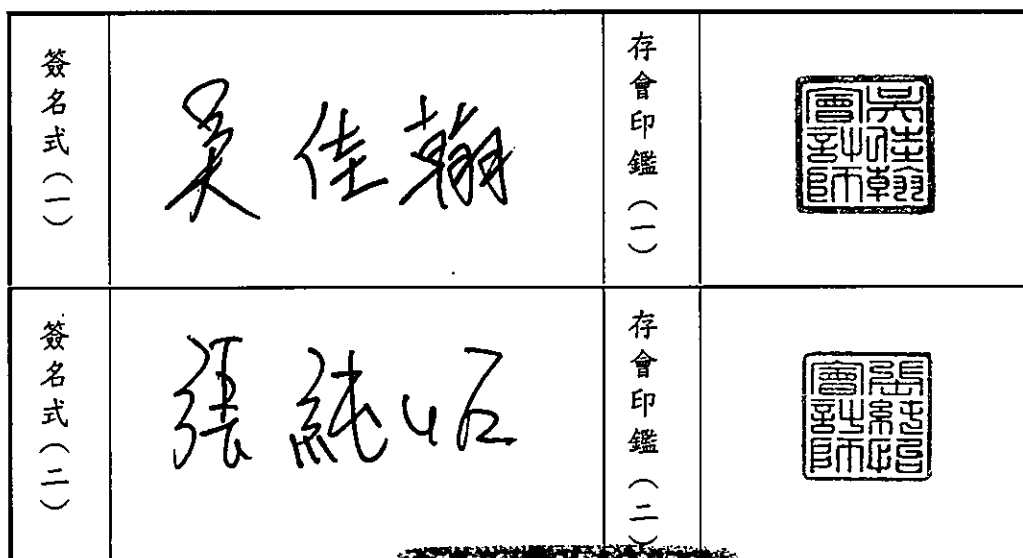 簽名式(一)
吳佳翰
存會印鑑(一)
吳佳翰
會計師
簽名式(二)
張純怡
存會印鑑(二)
張純怡
會計師